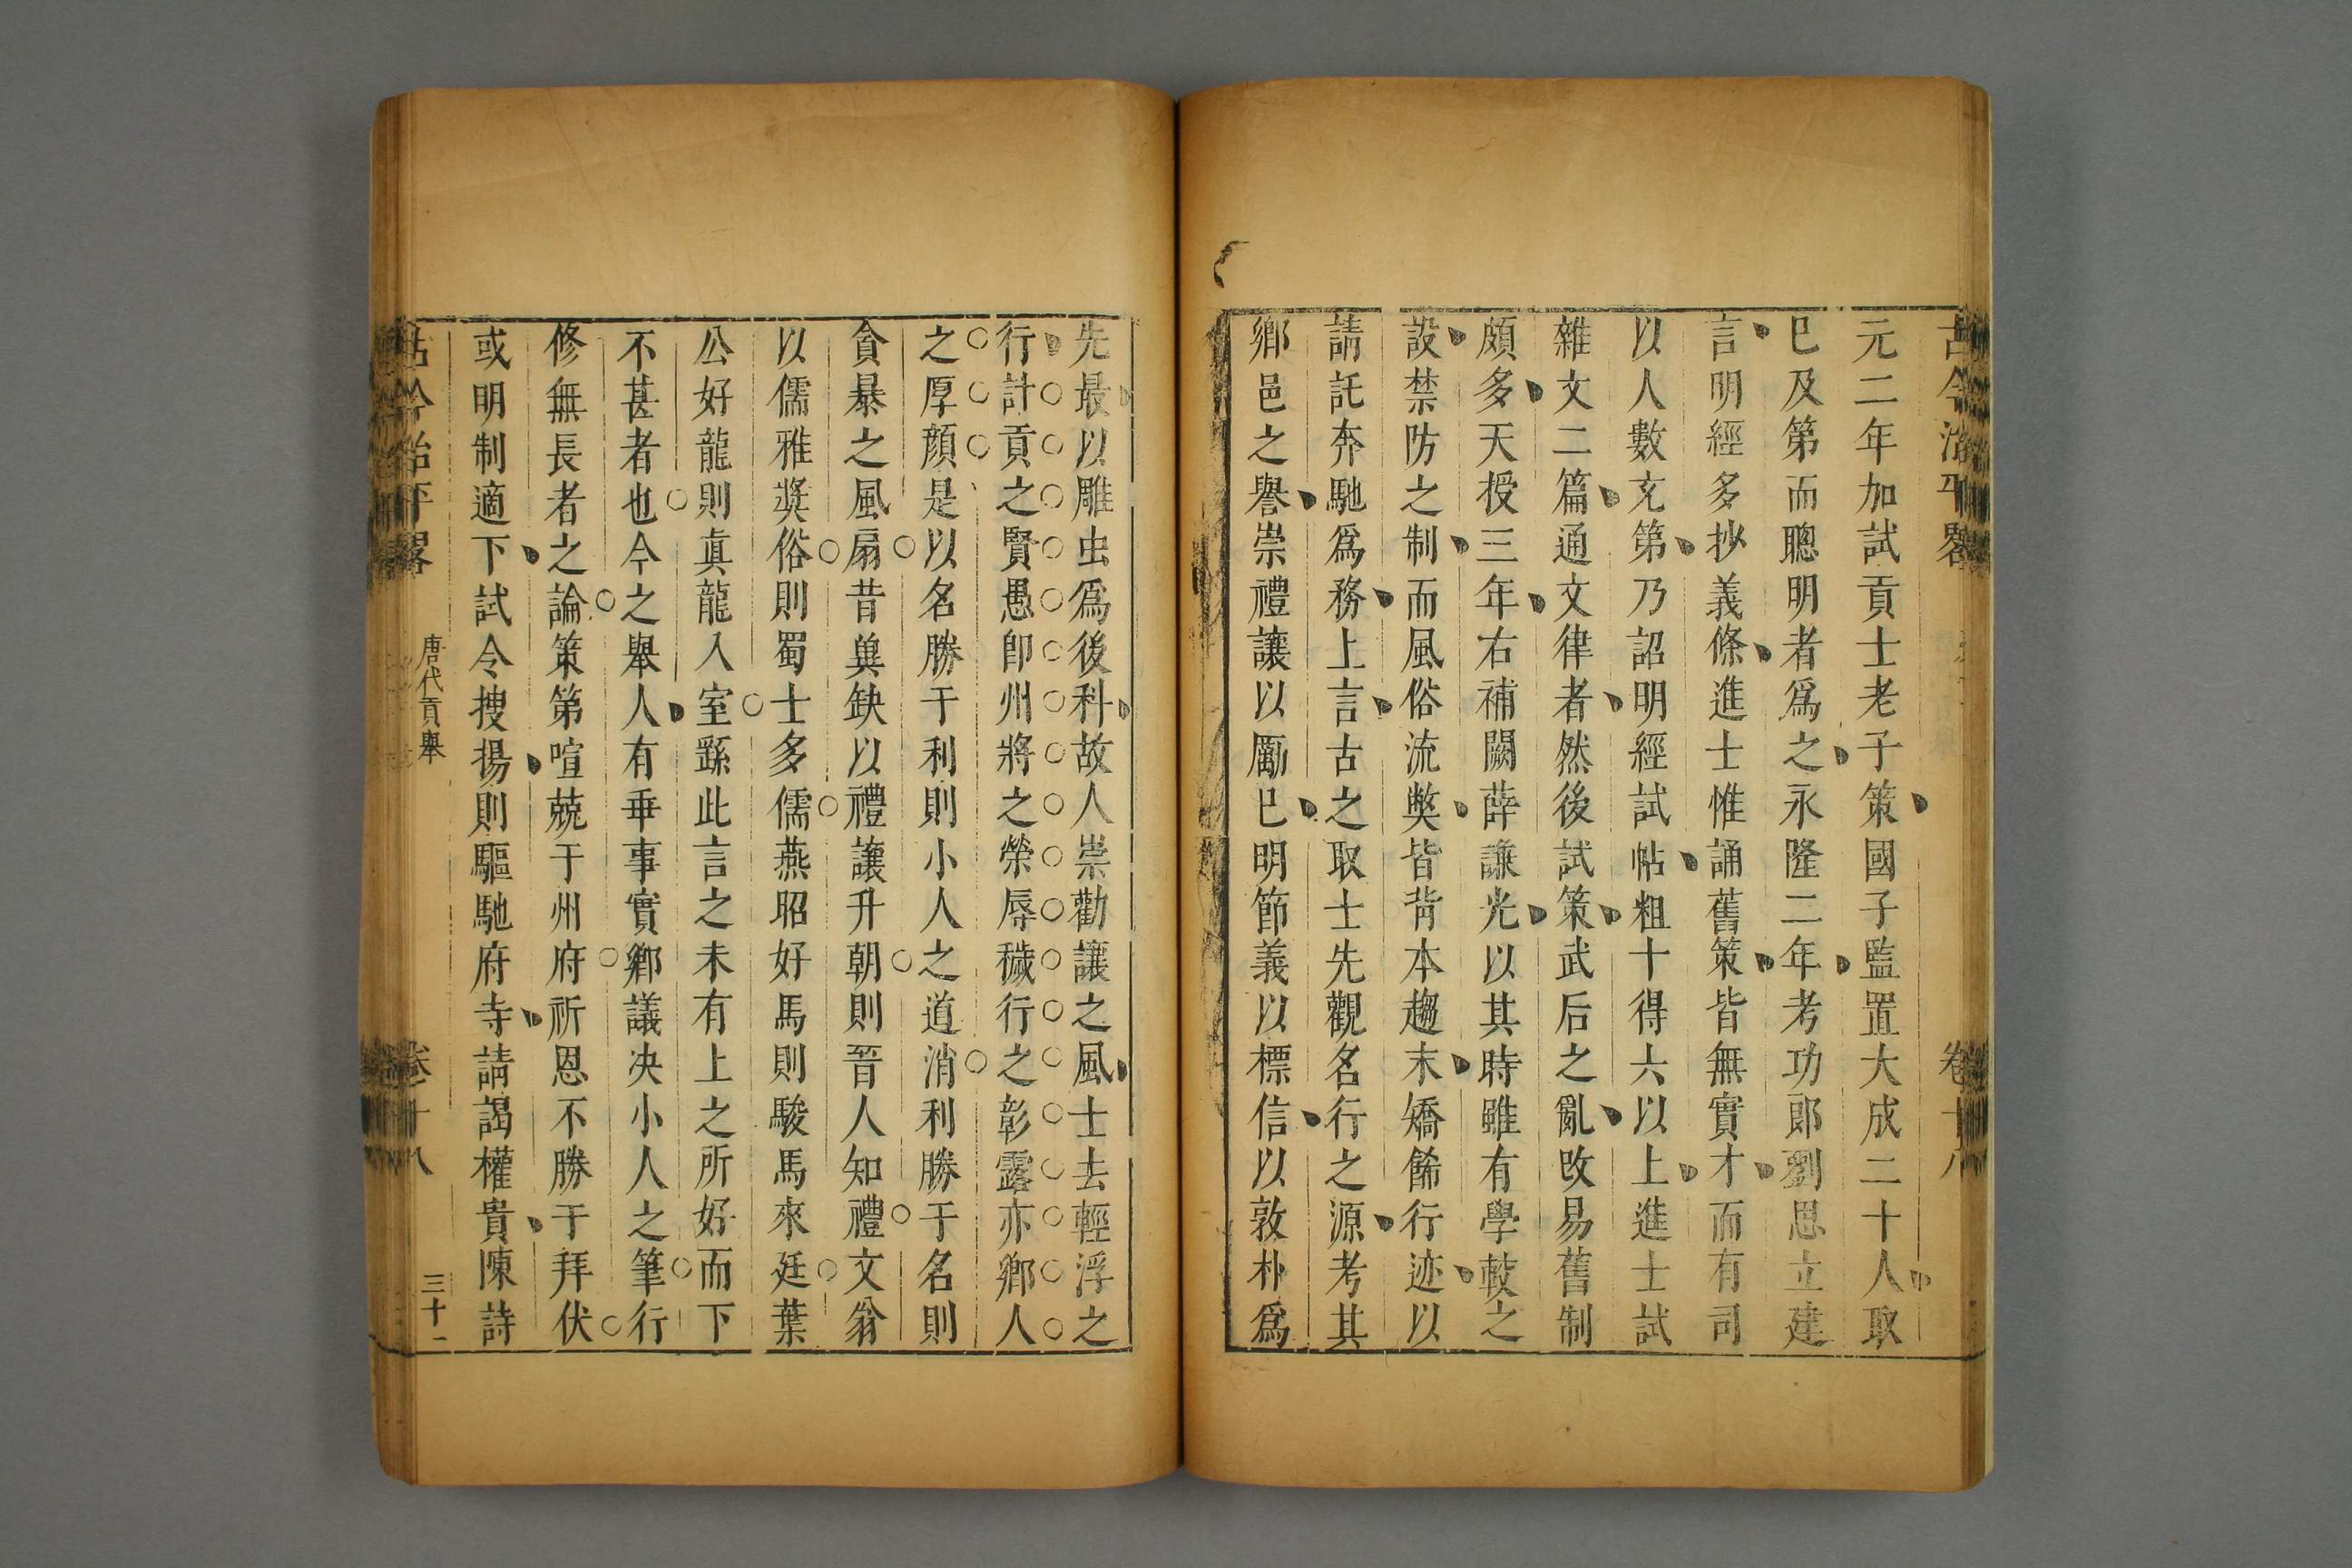 古今治平畧
卷十八
元二年加試貢士老子策國子監置大成二十人取
已及第而聰明者爲之永隆二年考功郎劉思立建
言明經多抄義條進士惟誦舊策皆無實才而有司
以人數充第乃詔明經試帖粗十得六以上進士試
雜文二篇通文律者然後試策武后之亂改易舊制
頗多天授三年右補闕薛謙光以其時雖有學較之
設禁防之制而風俗流獘皆背本趨末矯餙行迹以
請託奔馳爲務上言古之取士先觀名行之源考其
鄉邑之譽崇禮讓以勵已明節義以標信以敦朴爲
先最以雕虫爲後科故人崇勸讓之風士去輕浮之
行計貢之賢愚卽州將之榮辱穢行之彰露亦鄉人
之厚顔是以名勝于利則小人之道消利勝于名則
貪暴之風扇昔兾缺以禮讓升朝則晉人知禮文翁
以儒雅奬俗則蜀士多儒燕昭好馬則駿馬來廷葉
公好龍則眞龍入室繇此言之未有上之所好而下
不甚者也今之舉人有乖事實鄉議决小人之筆行
修無長者之論策第喧競于州府祈恩不勝于拜伏
或明制適下試令搜揚則驅馳府寺請謁權貴陳詩
古今治平畧
唐代貢舉
卷十八
三十二